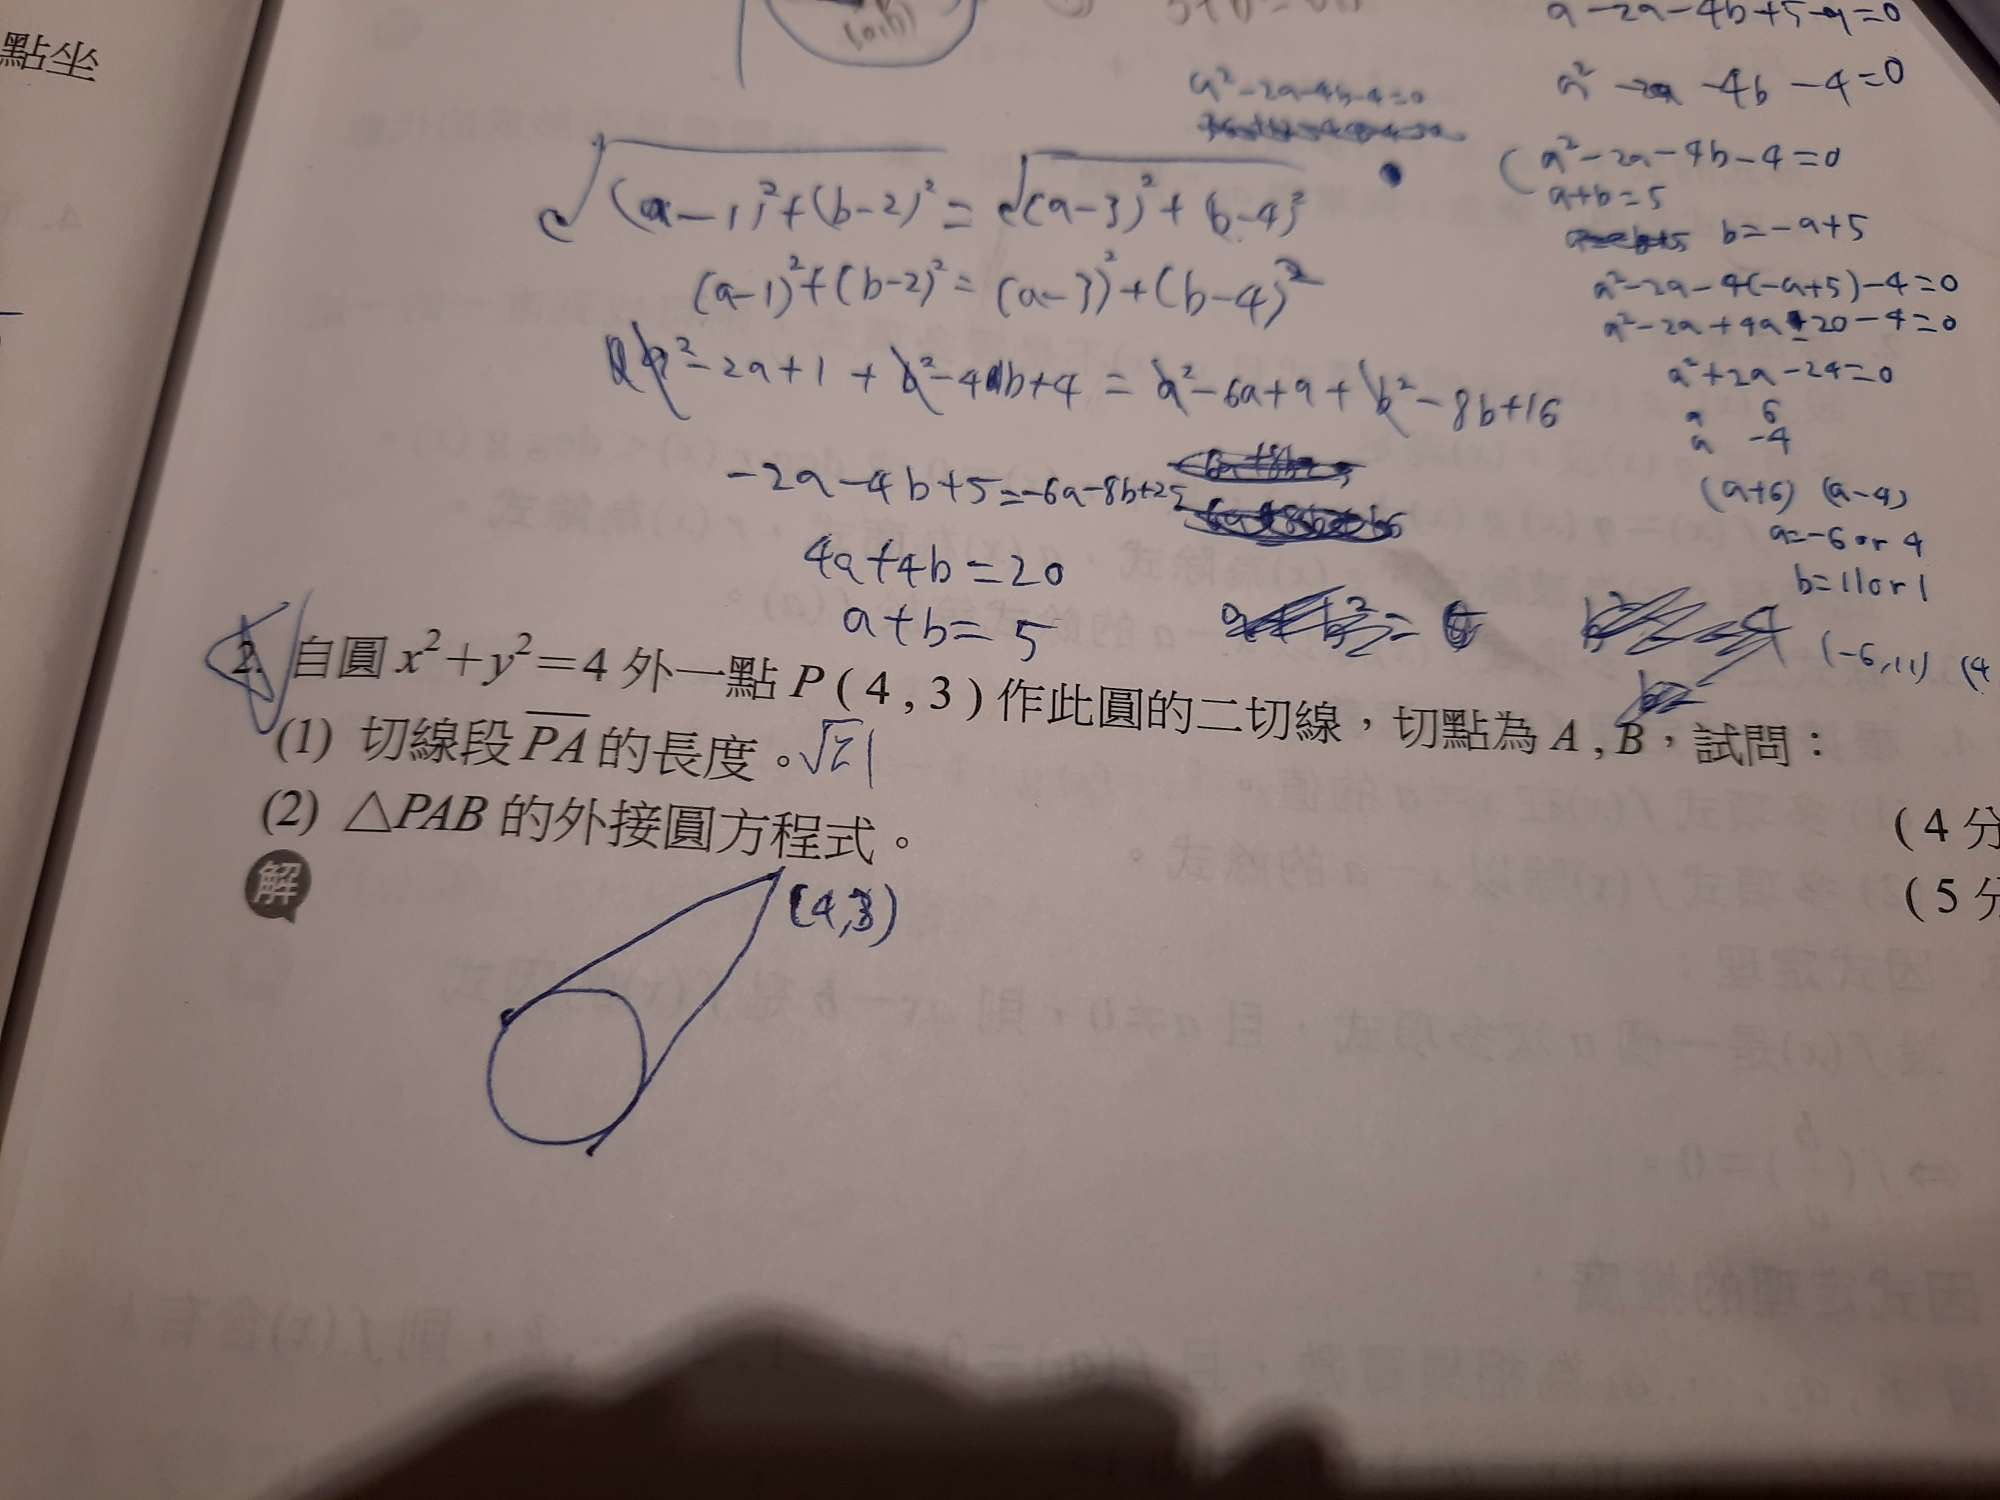 點坐
(a,b)
a-2a-4b+5-9=0
a²-2a-4b-4=0
a²-2a-4b-4=0
a²-2a-4b-4=0
a+b=5
b=-a+5
a²-2a-4(-a+5)-4=0
a²-2a+4a-20-4=0
a²+2a-24=0
a 6
a -4
(a+6) (a-4)
a=-6 or 4
b=11 or 1
(-6,11) (4
√(a-1)²+(b-2)² = √(a-3)²+(b-4)²
(a-1)²+(b-2)² = (a-3)²+(b-4)²
a²-2a+1+b²-4b+4 = a²-6a+9+b²-8b+16
-2a-4b+5=-6a-8b+25
4a+4b=20
a+b=5
2. 自圓 x²+y²=4 外一點 P(4,3) 作此圓的二切線,切點為 A,B,試問:
(1) 切線段 PA 的長度。√21
(4分
(2) △PAB 的外接圓方程式。
(5分
解
(4,3)